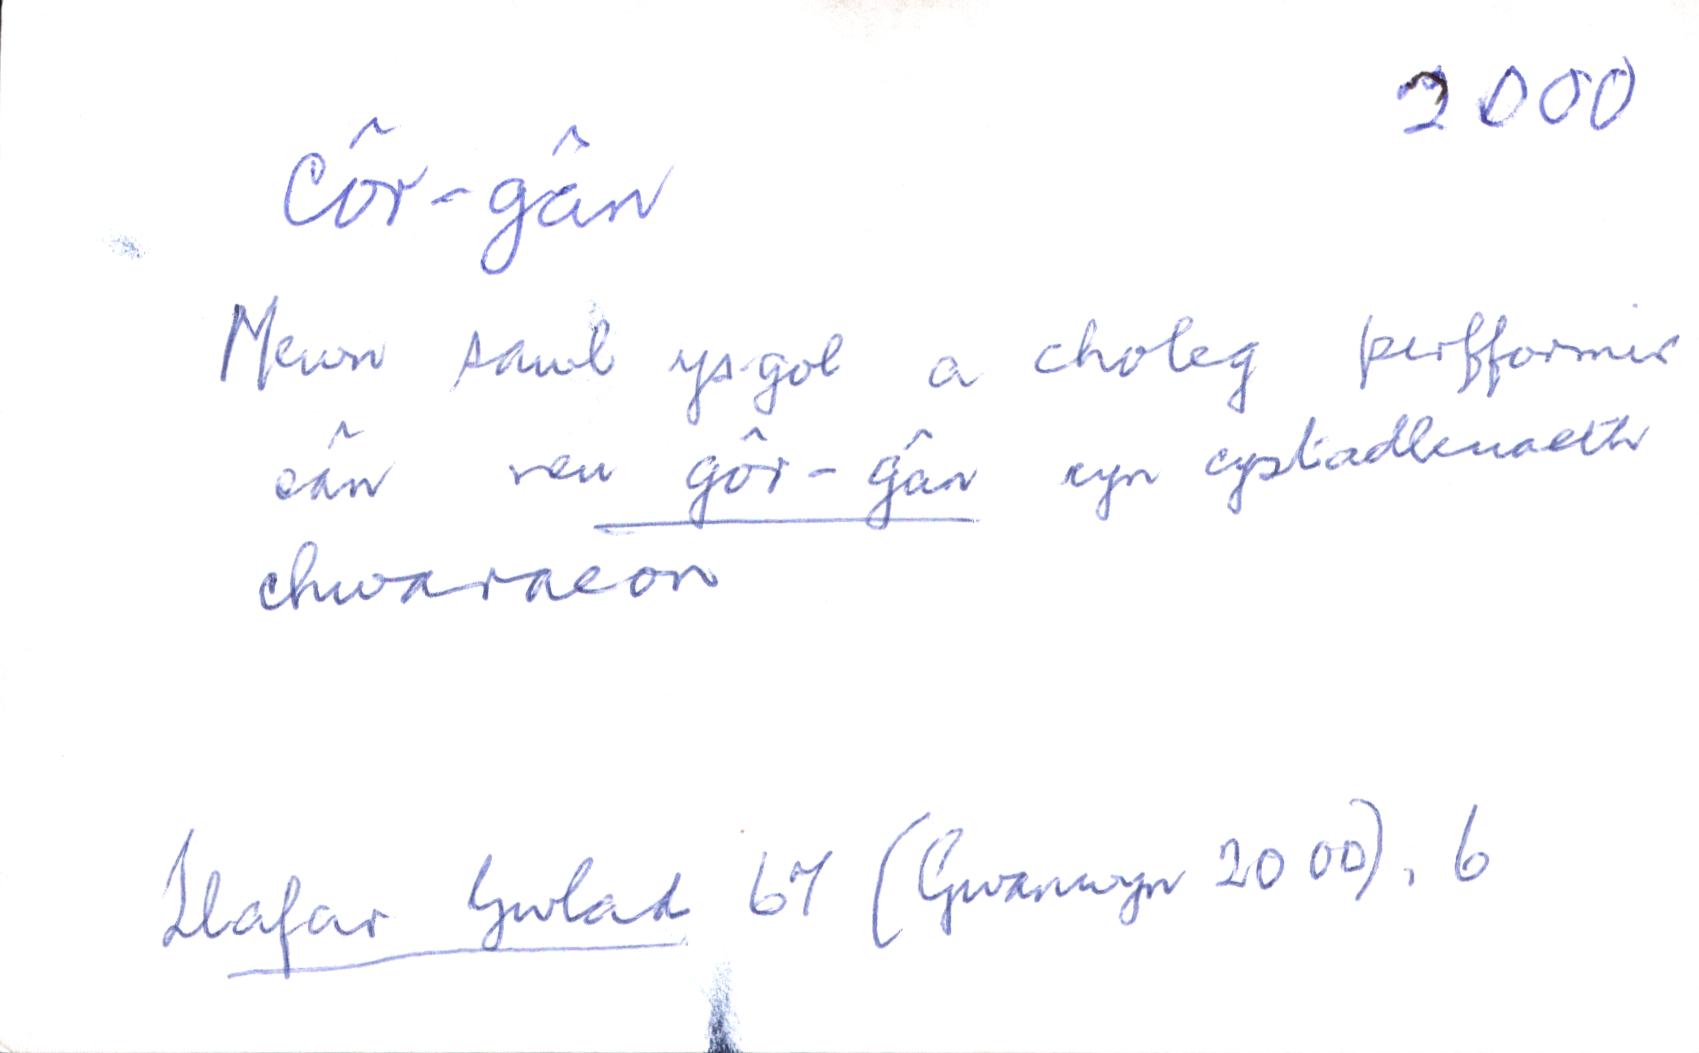 2000
Côr-gân
Mewn sawl ysgol a choleg perfformir
cân neu gôr-gân cyn cystadleuaeth
chwaraeon
Llafar Gwlad 67 (Gwanwyn 2000), 6